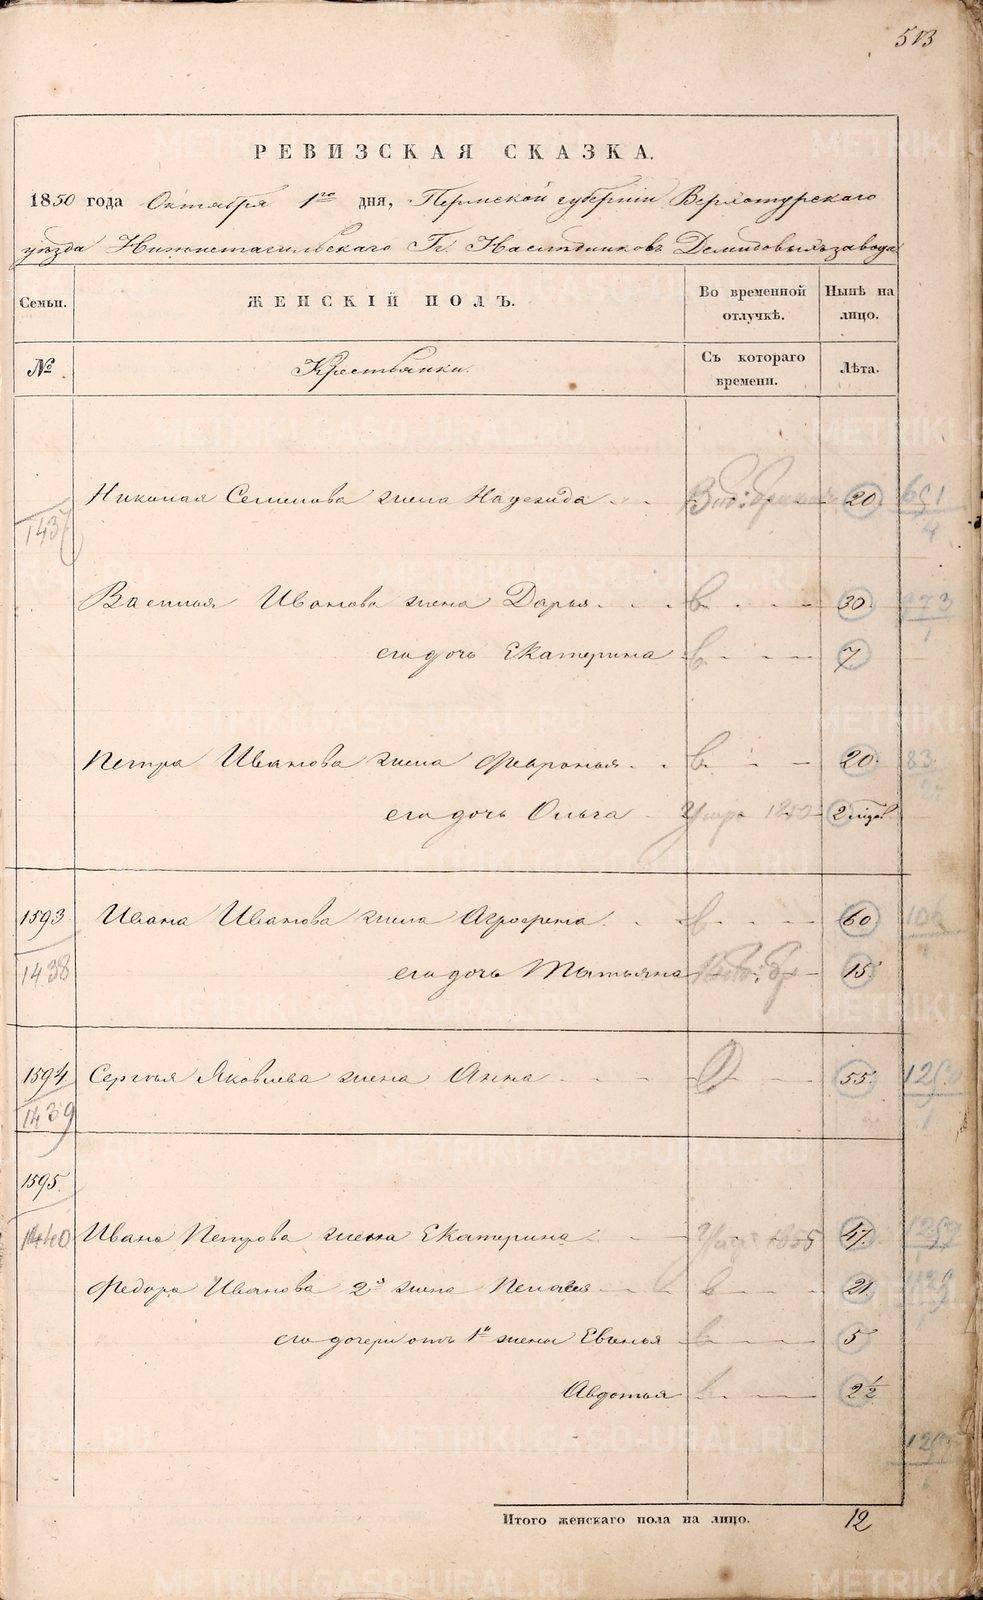 513
РЕВИЗСКАЯ СКАЗКА.
1850 года Октября 1го дня, Пермской губернии Верхотурского
уѣзда Нижнетагильскаго Гг Наслѣдниковъ Демидовыхъ завода
Семьи. ЖЕНСКІЙ ПОЛЪ. Во временной отлучкѣ. Нынѣ на лицо.
№ Крестьянки. Съ котораго времени. Лѣта.
Николая Семенова жена Надежда 20 651
1437 4
Василья Иванова жена Дарья в 30 973
1
его дочь Екатерина в 7
Петра Иванова жена Февронья в 20 83
его дочь Ольга Умре 1850 2
1593 Ивана Иванова жена Агрофена в 60 106
1438 его дочь Татьяна 15
1594 Сергѣя Яковлева жена Анна 55
1439 1
1595
1440 Ивана Петрова жена Екатерина 47
Федора Иванова 2я жена в 21
его дочери отъ 1й жены Евгенья в 5
Авдотья в 2 1/2
Итого женскаго пола на лицо. 12
METRIKI.GASO-URAL.RU